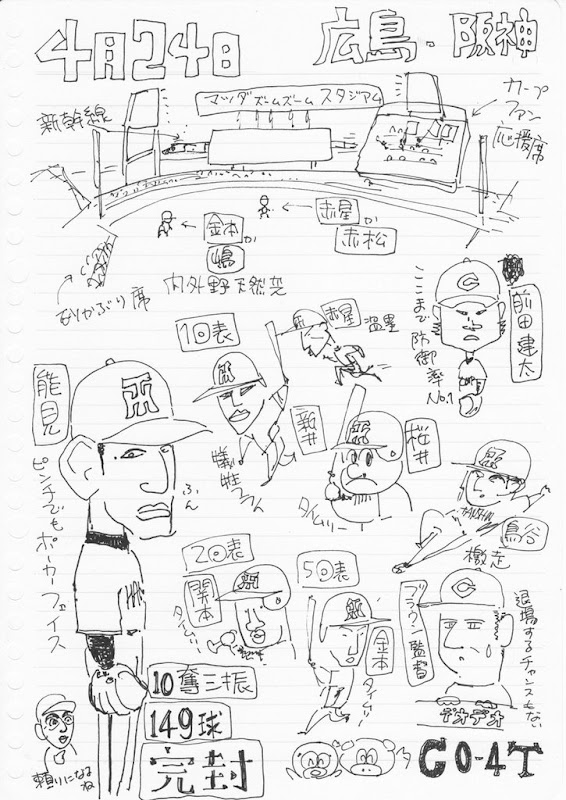 4月24日
広島・阪神
マツダズームズームスタジアム
新幹線
カープ
ファン
応援席
←赤星か
赤松
←金本か
嶋
砂かぶり席
内外野天然芝
前田建太
ここまで
防御率
No.1
能見
ピンチでもポーカーフェイス
ふん
1回表
赤星
新井
犠牲
桜井
タイムリー
鳥谷
HANSHIN
激走
2回表
関本
タイムリー
5回表
金本
タイムリー
ブラウン監督
退場するチャンスもない
デオデオ
10奪三振
149球
完封
頼りになる
ね
C0-4T